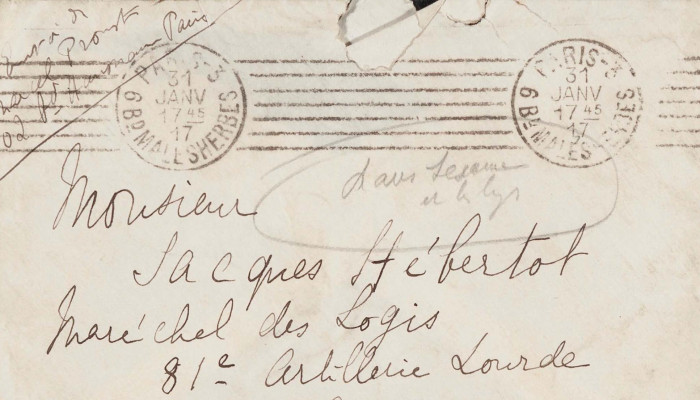 Envoi de
Marcel Proust
102 Bd Haussmann Paris
PARIS-3
31
JANV
17 45
17
6 Bd MALESHERBES
PARIS-3
31
JANV
17 45
17
6 Bd MALESHERBES
dans Sesame
et les lys
Monsieur
Jacques Hébertot
Maréchel des Logis
81e Artillerie Lourde